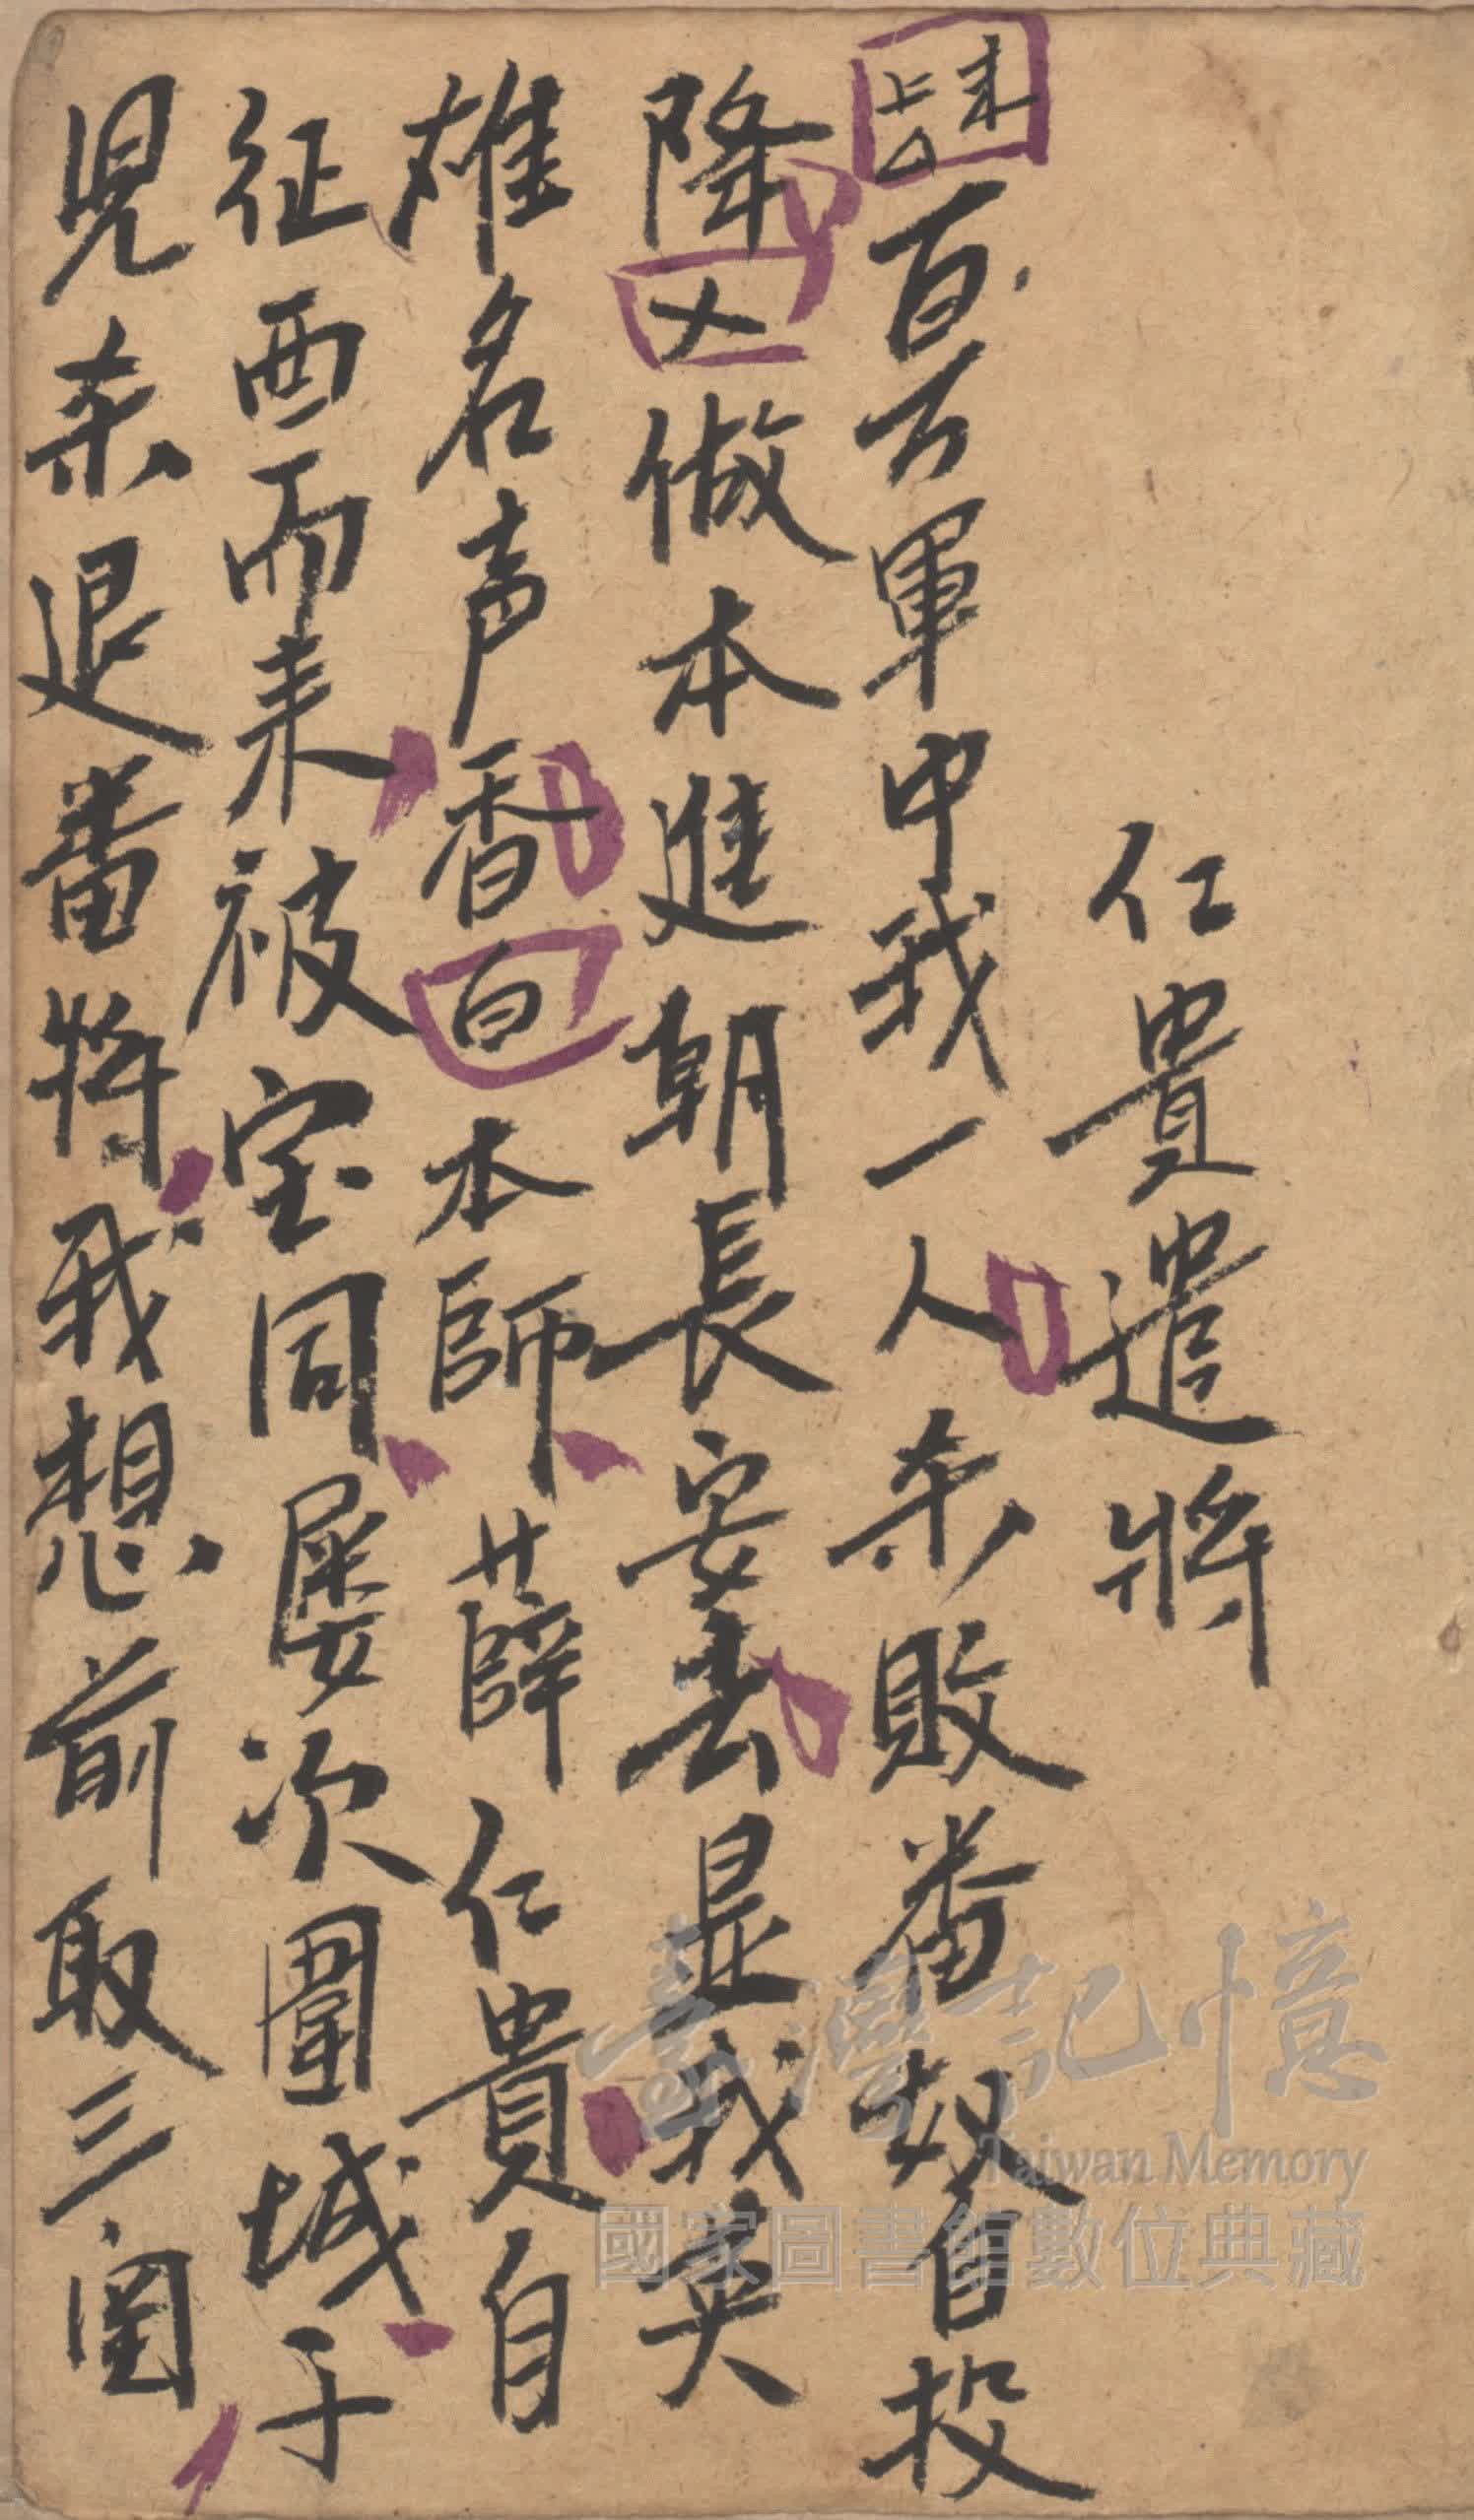 仁貴遣將
百万軍中我一人杀敗番奴自投
降乂做本進朝長安去显我英
雄名声香白本師薛仁貴自
征西而来被宝同屡次圍城于
児杀退番将我想前取三関
臺灣記憶
Taiwan Memory
國家圖書館數位典藏